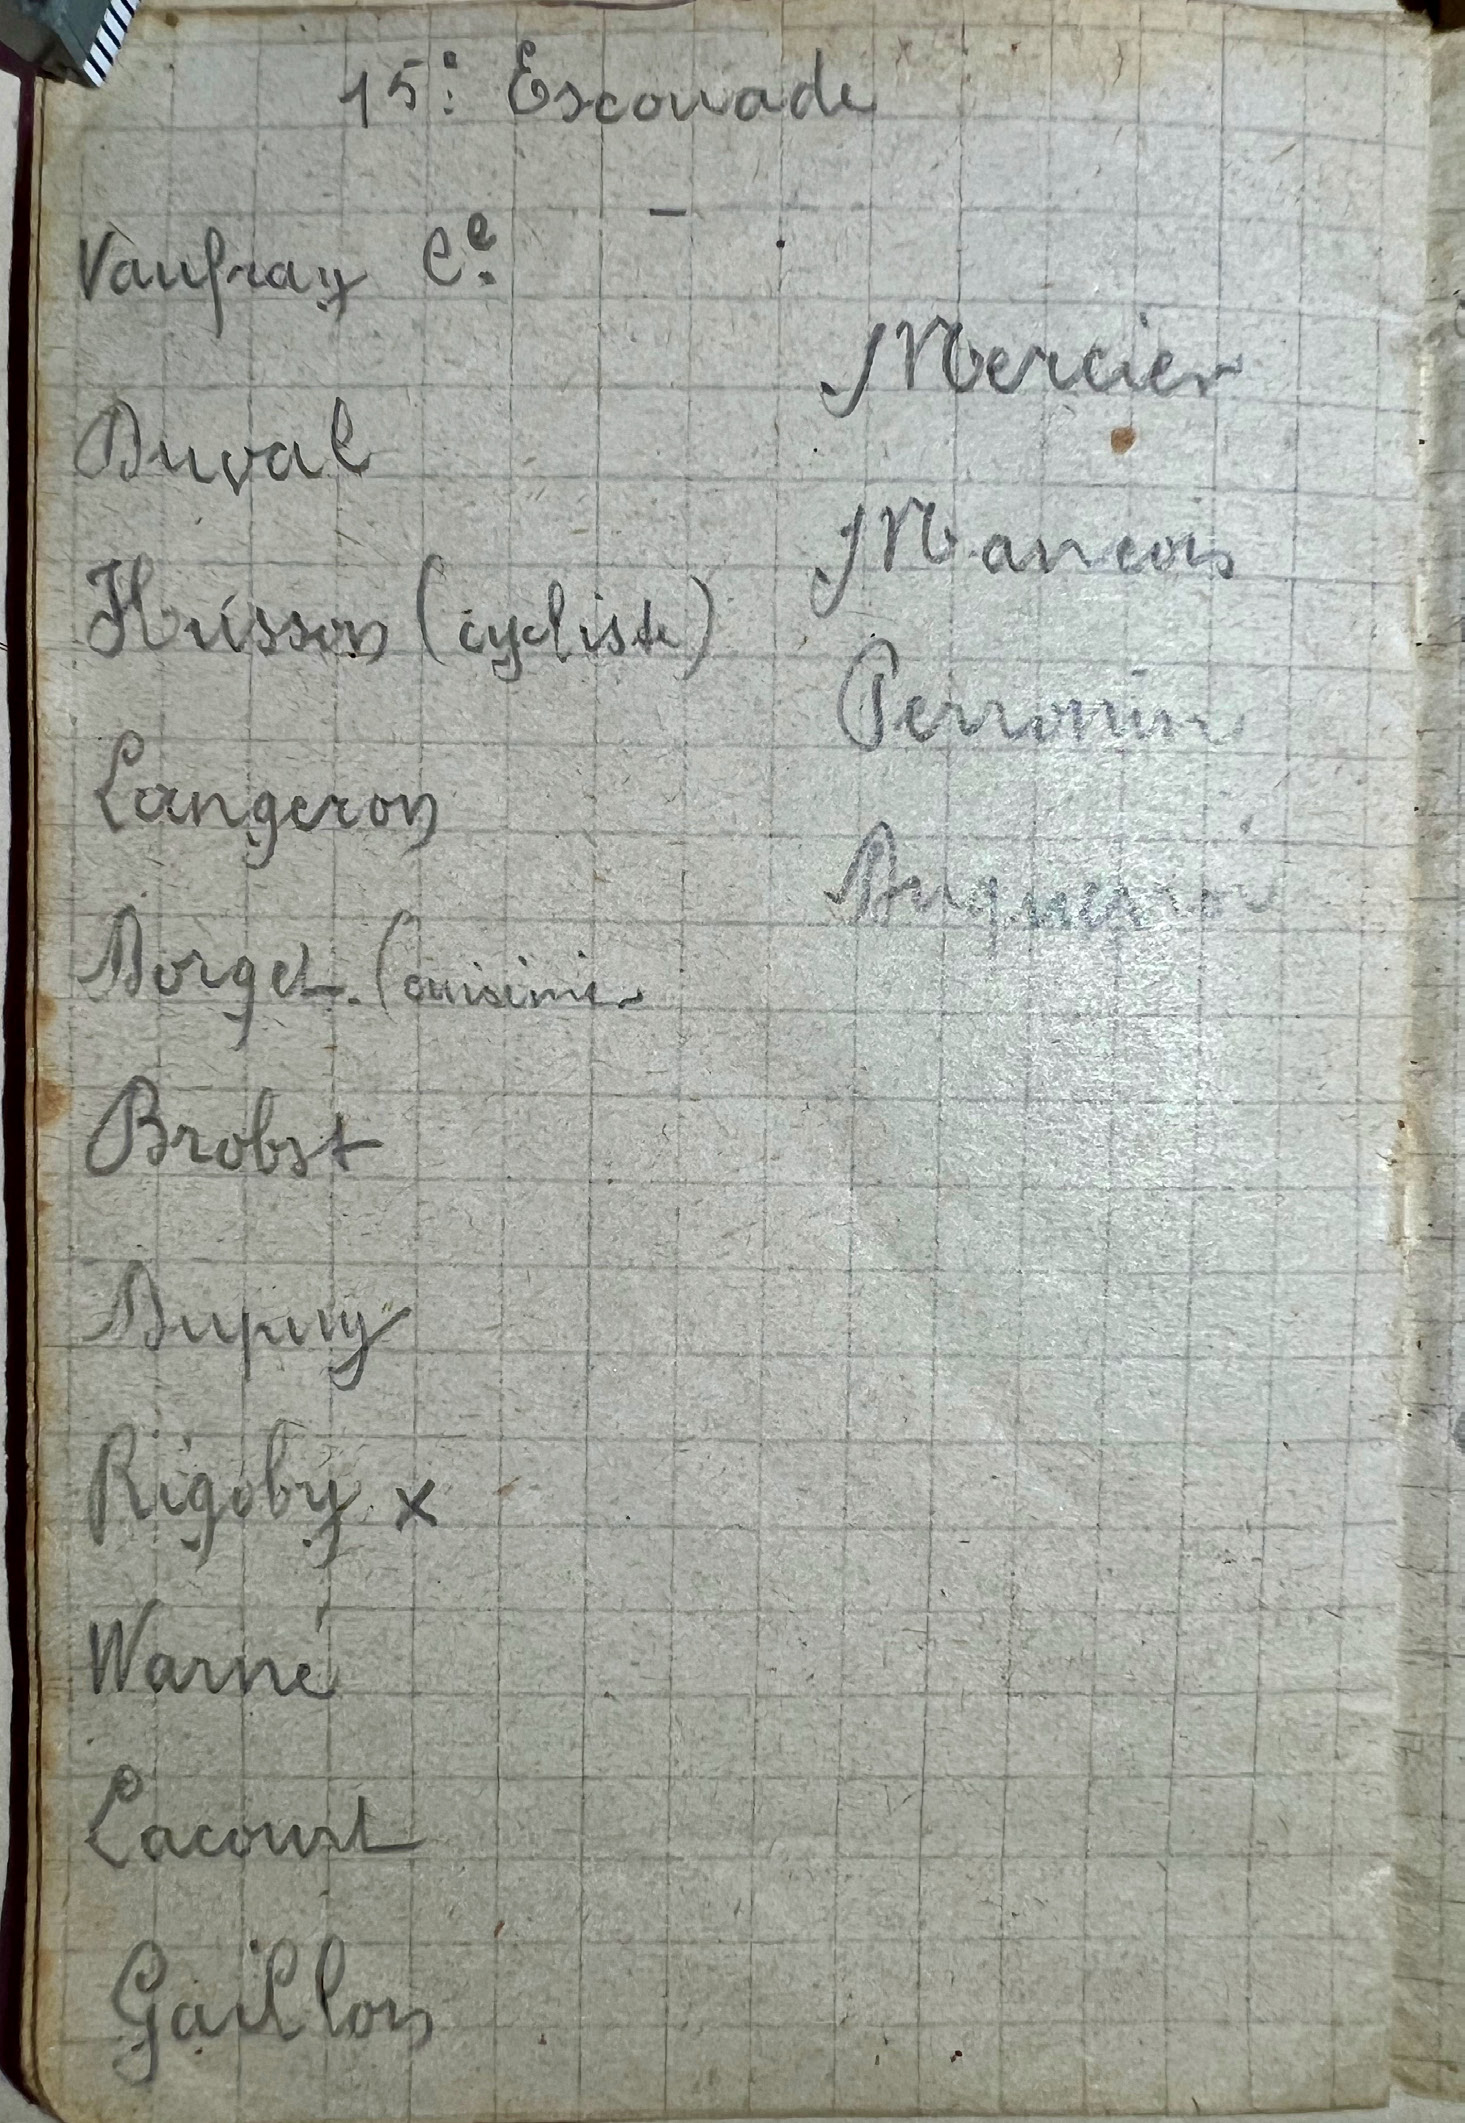 15e Escouade
Vaufray Ce
Duval
Husson (cycliste)
Langeron
Dorget. (cuisinier
Brobst
Dupuy
Rigoby x
Warné
Lacourt
Gaillon
Mercier
Mancois
Perronin